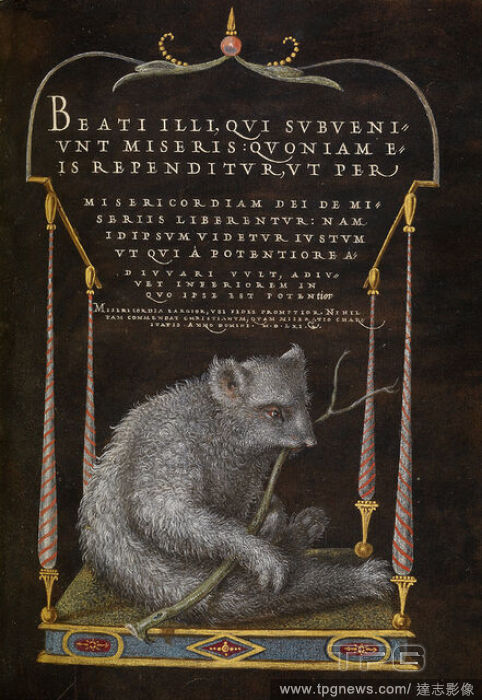 BEATI ILLI, QVI SVBVENI〃
VNT MISERIS: QVONIAM E〃
IS REPENDITVR, VT PER
MISERICORDIAM DEI DE MI〃
SERIIS LIBERENTVR: NAM
ID IPSVM VIDETVR IVSTVM
VT QVI À POTENTIORE A〃
DIVVARI VVLT, ADIV〃
VET INFERIOREM IN
QVO IPSE EST POTENtior
MISERICORDIA LARGIOR, VBI FIDES PROMPTIOR. NIHIL
TAM COMMENDAT CHRISTIANVM, QVAM MISERATIO CHARI
TATIS ANNO DOMINI M·D·LXI·
TPG
www.tpgnews.com / 達志影像